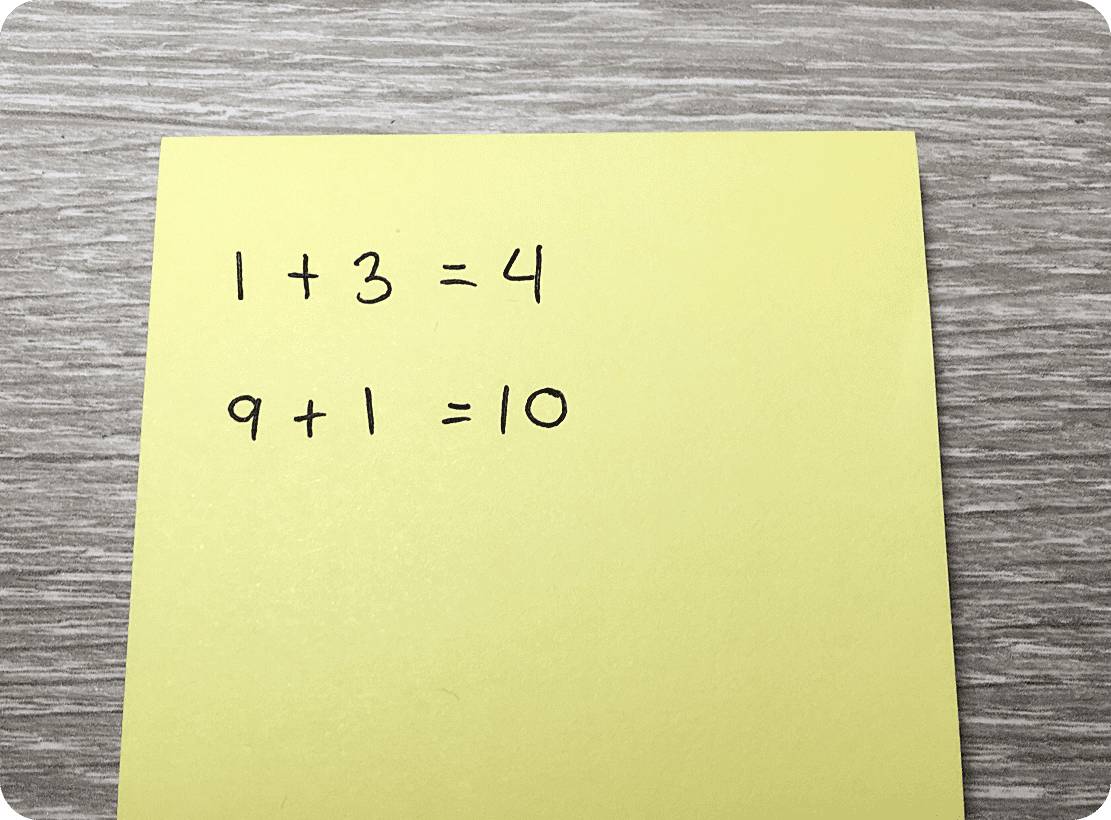 1 + 3 = 4
9 + 1 = 10